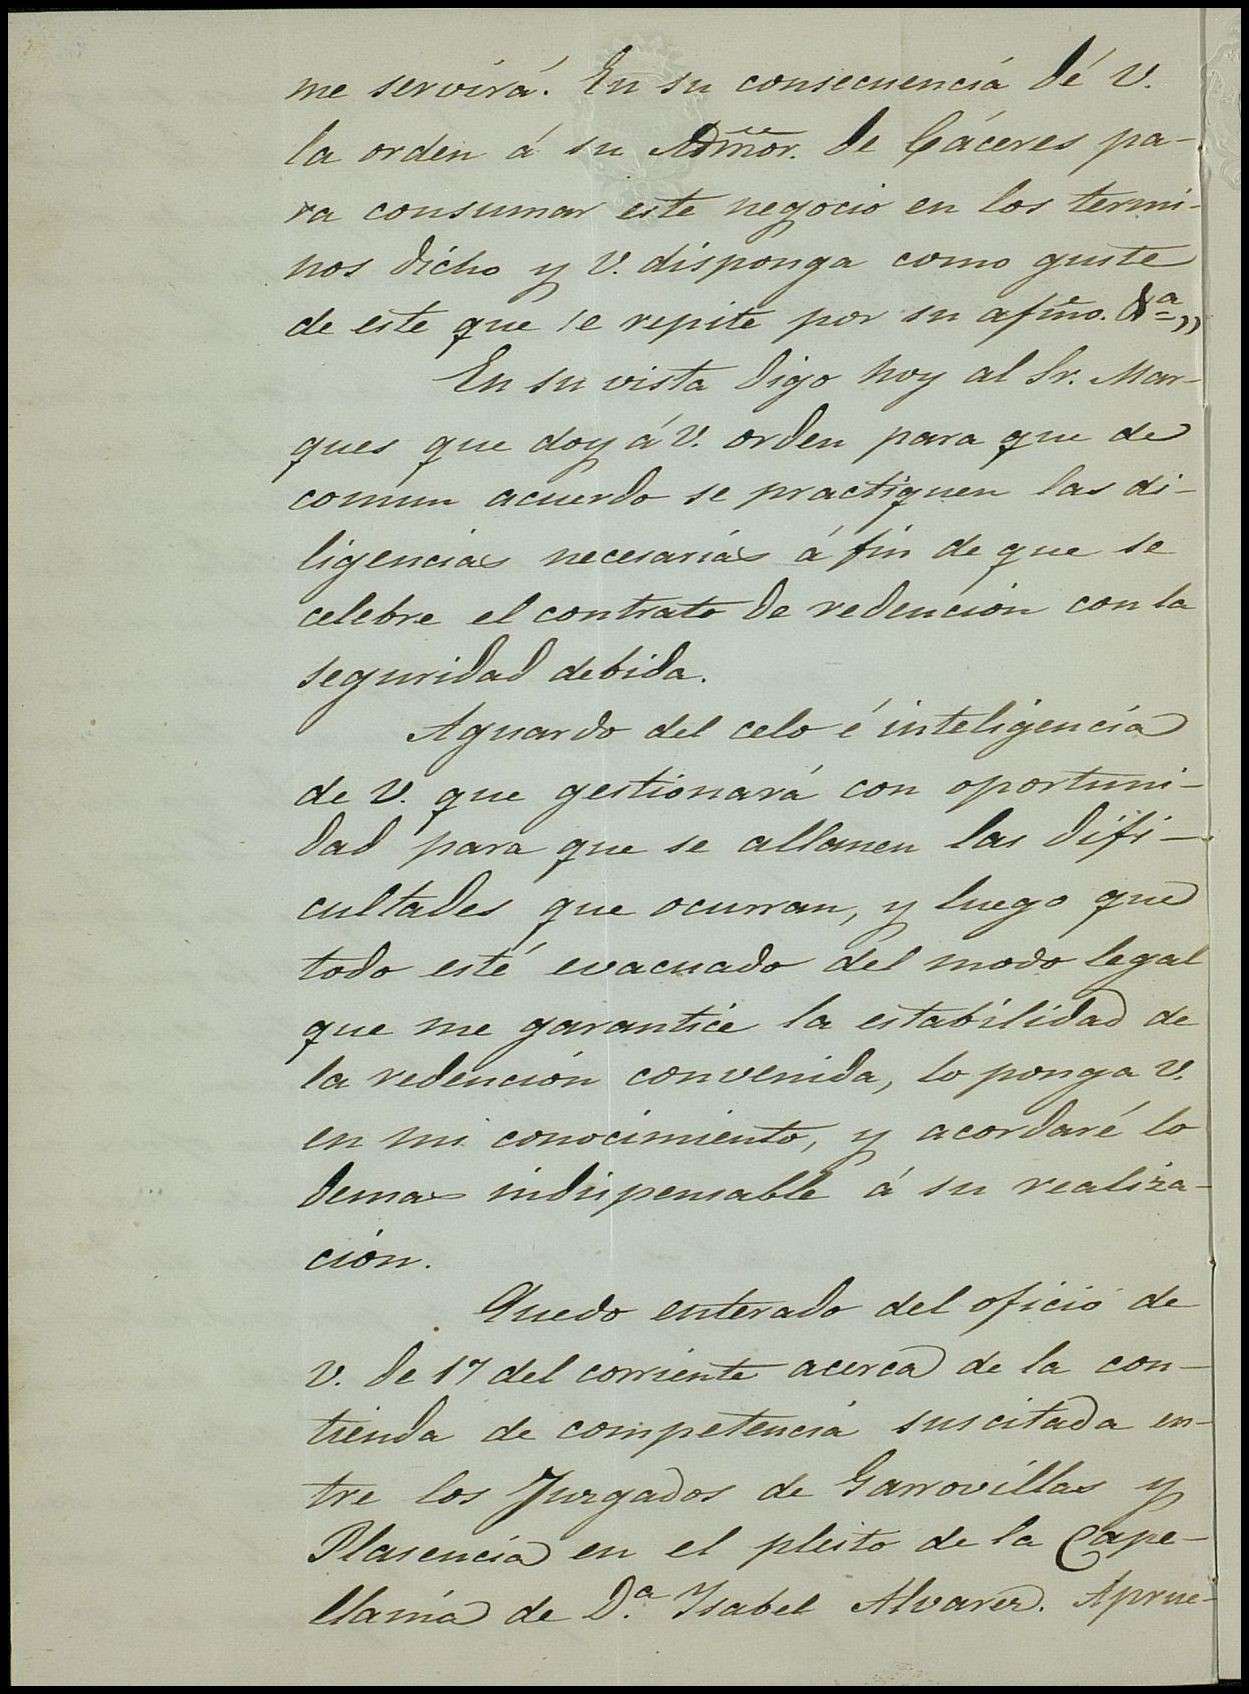 me servirá. En su consecuencia dé V.
la orden á su Admor. de Cáceres pa-
ra consumar este negocio en los termi-
nos dicho y V. disponga como guste
de este que se repite por su afmo. &a „
En su vista digo hoy al Sr. Mar-
ques que doy á V. orden para que de
comun acuerdo se practiquen las di-
ligencias necesarias á fin de que se
celebre el contrato de redencion con la
seguridad debida.
Aguardo del celo é inteligencia
de V. que gestionará con oportuni-
dad para que se allanen las difi-
cultades que ocurran, y luego que
todo esté evacuado del modo legal
que me garantice la estabilidad de
la redencion convenida, lo ponga V.
en mi conocimiento, y acordaré lo
demas indispensable á su realiza-
cion.
Quedo enterado del oficio de
V. de 17 del corriente acerca de la con-
tienda de competencia suscitada en-
tre los Juzgados de Garrovillas y
Plasencia en el pleito de la Cape-
llania de D.ª Ysabel Alvarez. Aprue-